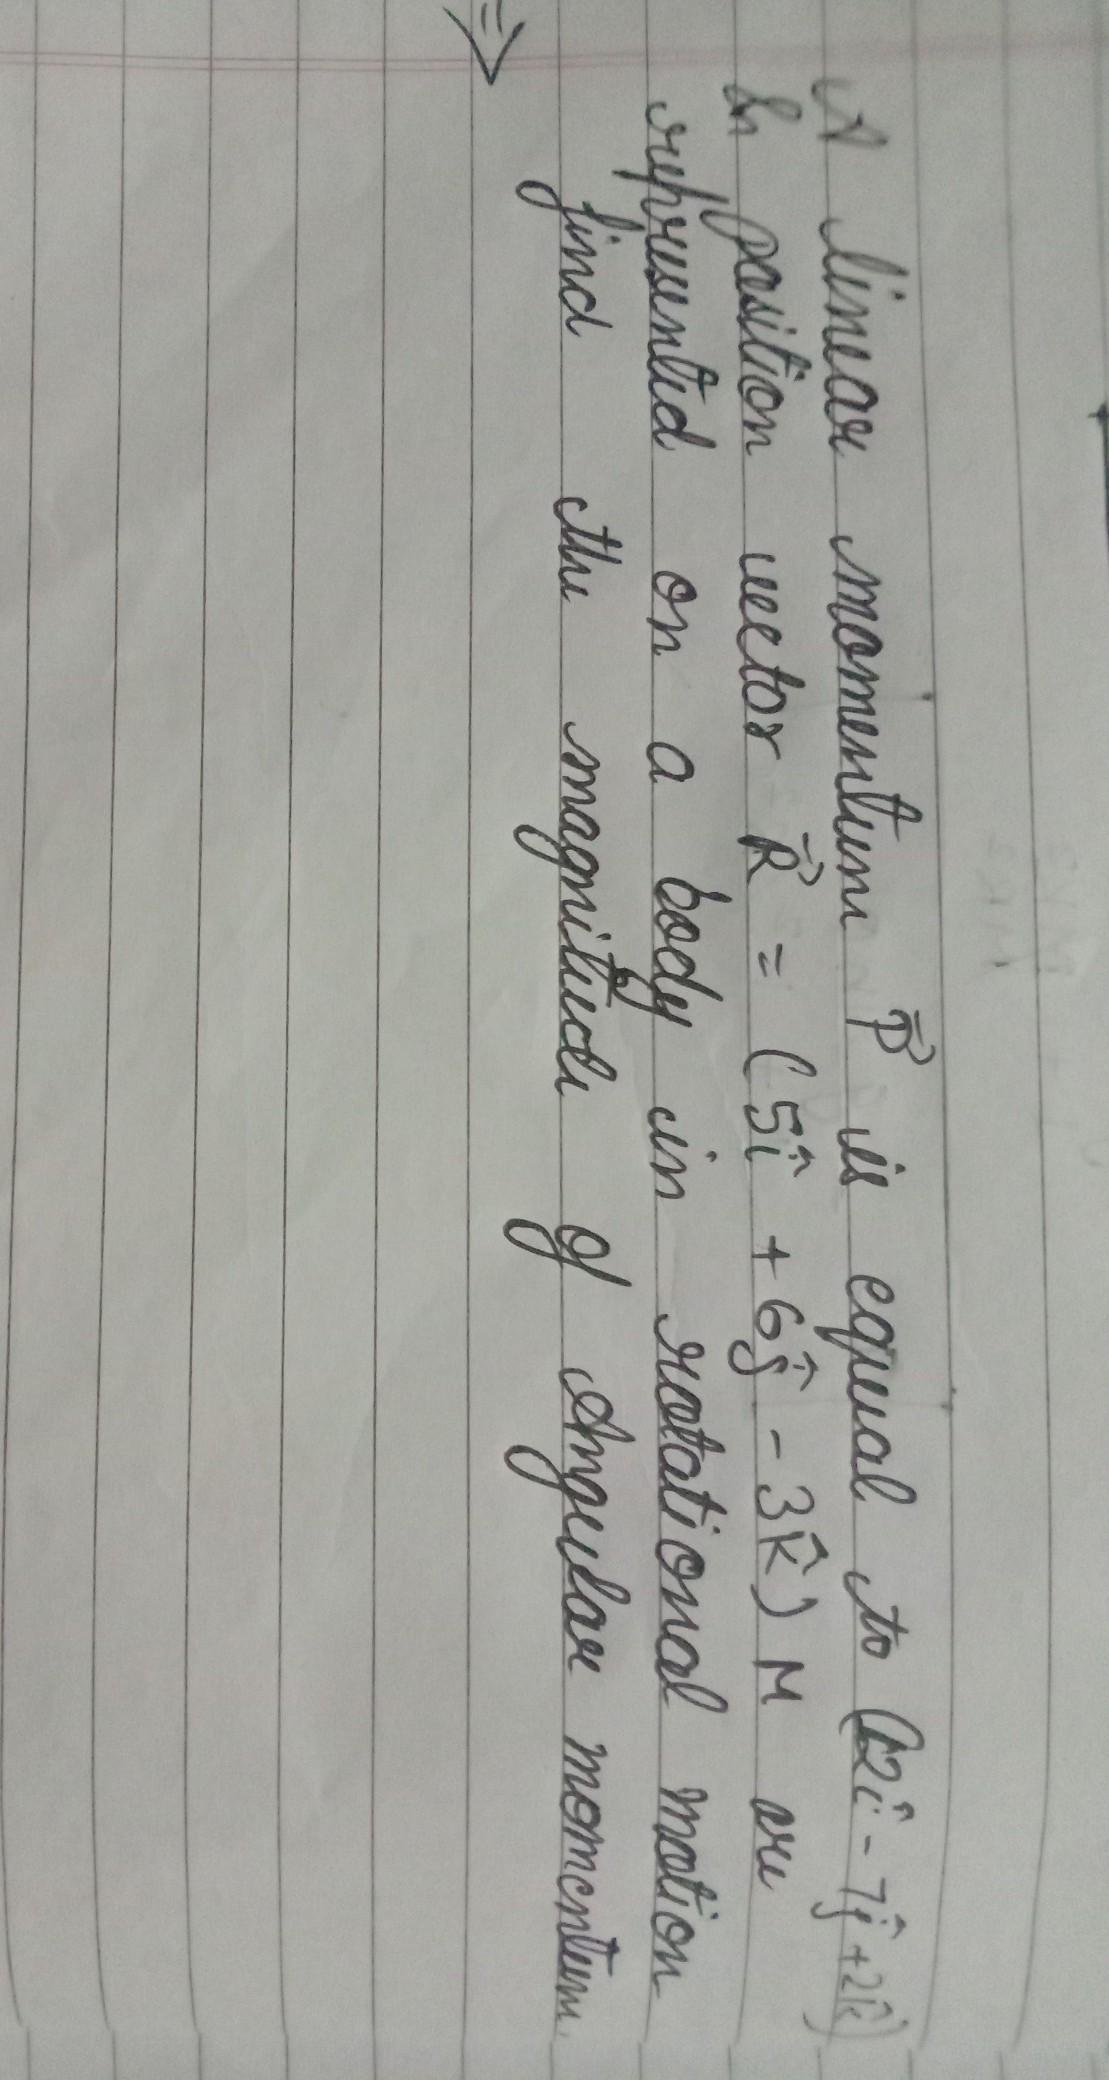 A linear momentum P⃗ is equal to (2î - 7ĵ + 2k̂)
& position vector R⃗ = (5î + 6ĵ - 3k̂) M are
represented on a body in rotational motion
find the magnitude of Angular momentum.
⇒